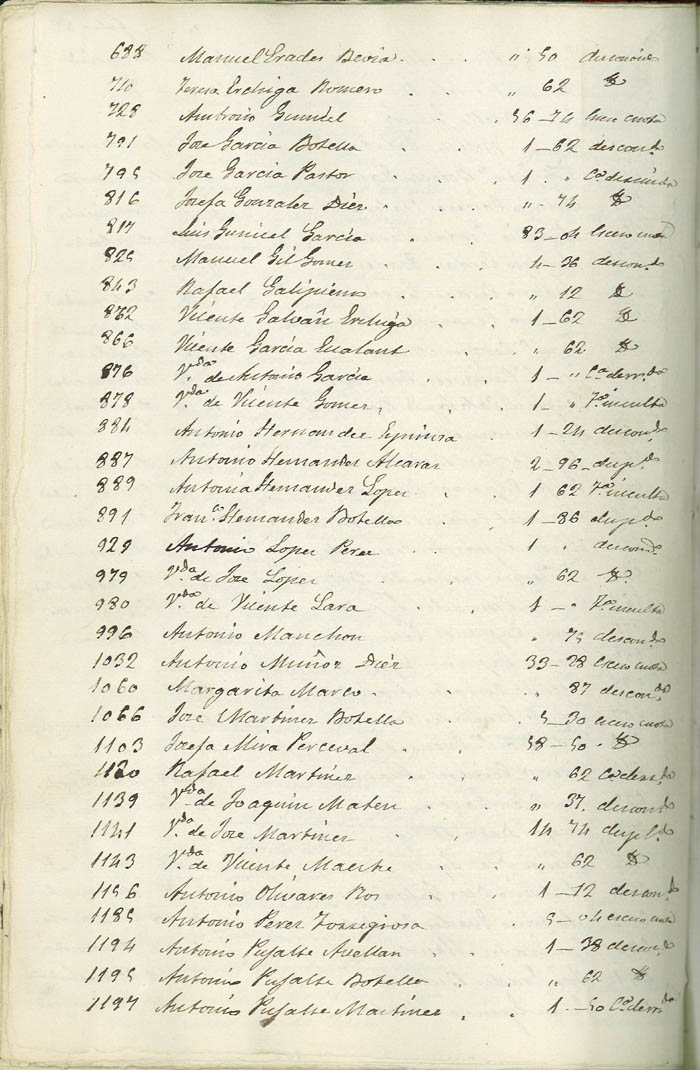 688 Manuel Prades Bevia . . " 50 descono
710 Teresa Erchiga Romero . " 62 D
728 Antonio Gumiel 56-74 hizo cuota
791 Jose Garcia Botella . . 1-62 descon.do
795 Jose Garcia Pastor . . 1 . " Ca
816 Josefa Gonzalez Diez . . "-74 D
817 Luis Gumiel Garcia 83-04
825 Manuel Gil Gomez . . 4-36 descon.do
843 Rafael . . " 12 D
862 Vicente Galvañ Erchiga . 1-62 D
866 Vicente Garcia . " 62 D
876 V.da de Antonio Garcia . . 1-"
878 V.da de Vicente Gomez, . . 1- " inculta
884 Antonio Hernandez Espinosa . 1-24 descon.
887 Antonio Hernandez Alcaraz 2-96-dup.do
889 Antonia Hernandez Lopez . 1 62 inculta
891 Fran.co Hernandez Botella . 1-86 dup.do
929 Antonio Lopez Perez . . 1 " descon.do
979 V.da de Jose Lopez . . " 62 D.
980 V.da de Vicente Lara . . 1-" inculta
996 Antonio Manchon " 75 descon.do
1032 Antonio Muñoz Diez 33-28
1060 Margarita Marco . . " 87 descon.do
1066 Jose Martinez Botella . . 5-30
1103 Josefa Mira Perceval . . 58-50 . D
1120 Rafael Martinez . . " 62
1139 V.da de Joaquin Mateu . . " 37. descon.do
1141 V.da de Jose Martinez . . 14 74 dup.do
1143 V.da de Vicente Maestre . . " 62 D
1156 Antonio Olivares Ros . . 1-12 descon.do
1185 Antonio Perez Torregrosa . 5-04
1194 Antonio Pujalte Avellan . . 1-38 descon.do
1195 Antonio Pujalte Botella . " 62 D
1197 Antonio Pujalte Martinez . . 1.-50